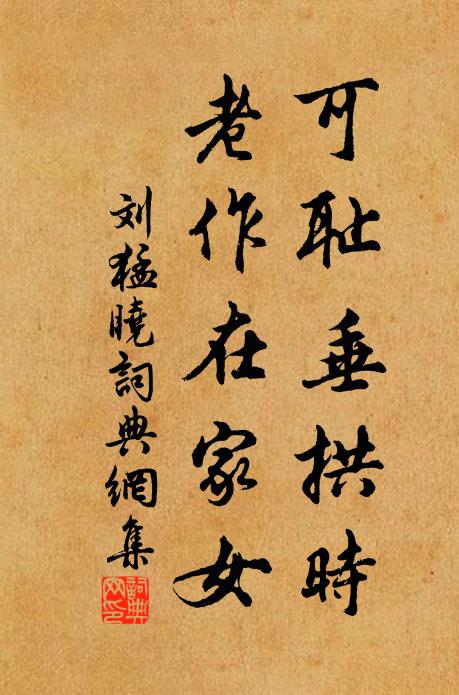 可耻垂拱時
老作在家女
刘猛曉詞典網集
詞典網印